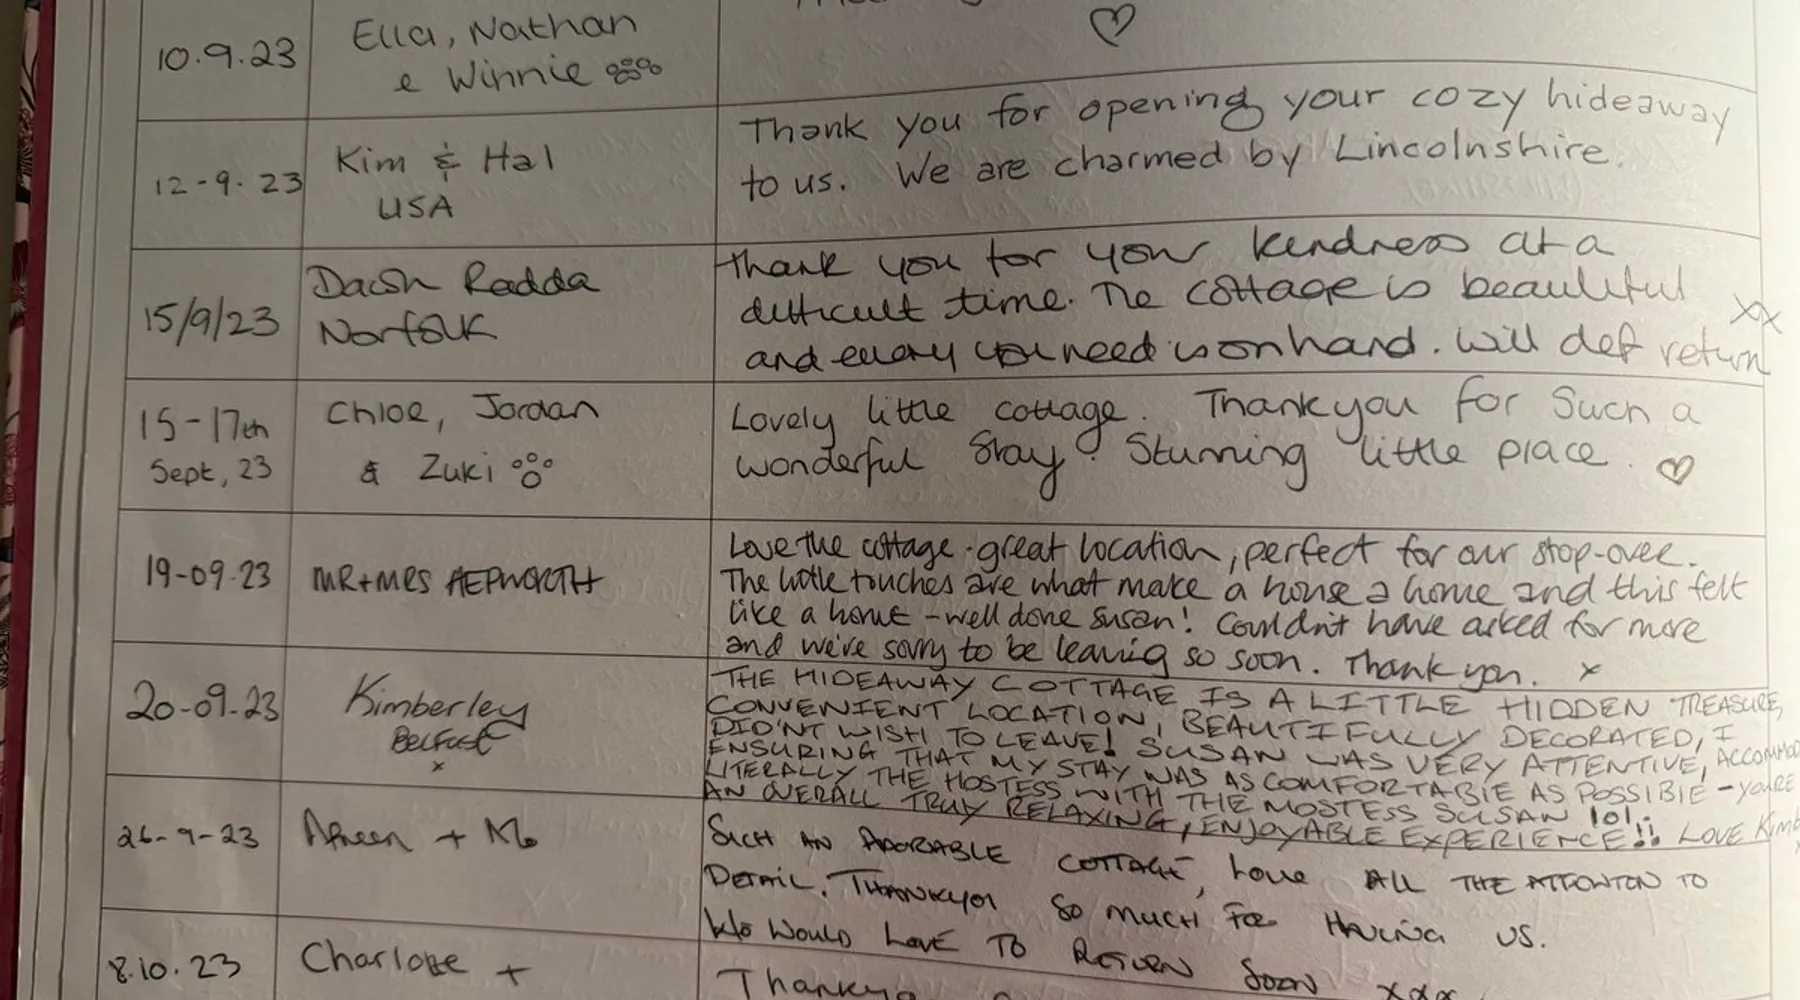 10.9.23
Ella, Nathan
& Winnie
12-9.23
Kim & Hal
USA
Thank you for opening your cozy hideaway
to us. We are charmed by Lincolnshire.
15/9/23
Radda
Norfolk
Thank you for your kindness at a
difficult time. The cottage is beautiful
and every you need is on hand. Will def return
xx
15-17th
Sept, 23
Chloe, Jordan
& Zuki
Lovely little cottage. Thankyou for such a
wonderful stay. Stunning little place.
19-09.23
MR+MRS HEPWORTH
Love the cottage - great location, perfect for our stop-over.
The little touches are what make a house a home and this felt
like a home - well done Susan! Couldn't have asked for more
and we're sorry to be leaving so soon. Thank you. x
20-09.23
Kimberley
Belfast
x
THE HIDEAWAY COTTAGE IS A LITTLE HIDDEN TREASURE,
CONVENIENT LOCATION, BEAUTIFULLY DECORATED, I
DID'NT WISH TO LEAVE! SUSAN WAS VERY ATTENTIVE,
ENSURING THAT MY STAY WAS AS COMFORTABLE AS POSSIBLE - YOU'RE
LITERALLY THE HOSTESS WITH THE MOSTESS SUSAN lol.
AN OVERALL TRULY RELAXING, ENJOYABLE EXPERIENCE!! LOVE
26-9-23
+ Mo
SUCH AN ADORABLE COTTAGE, Love ALL THE ATTENTION TO
DETAIL. THANKYOU SO MUCH FOR HAVING US.
We WOULD LOVE TO RETURN SOON xxx
8.10.23
Charlotte +